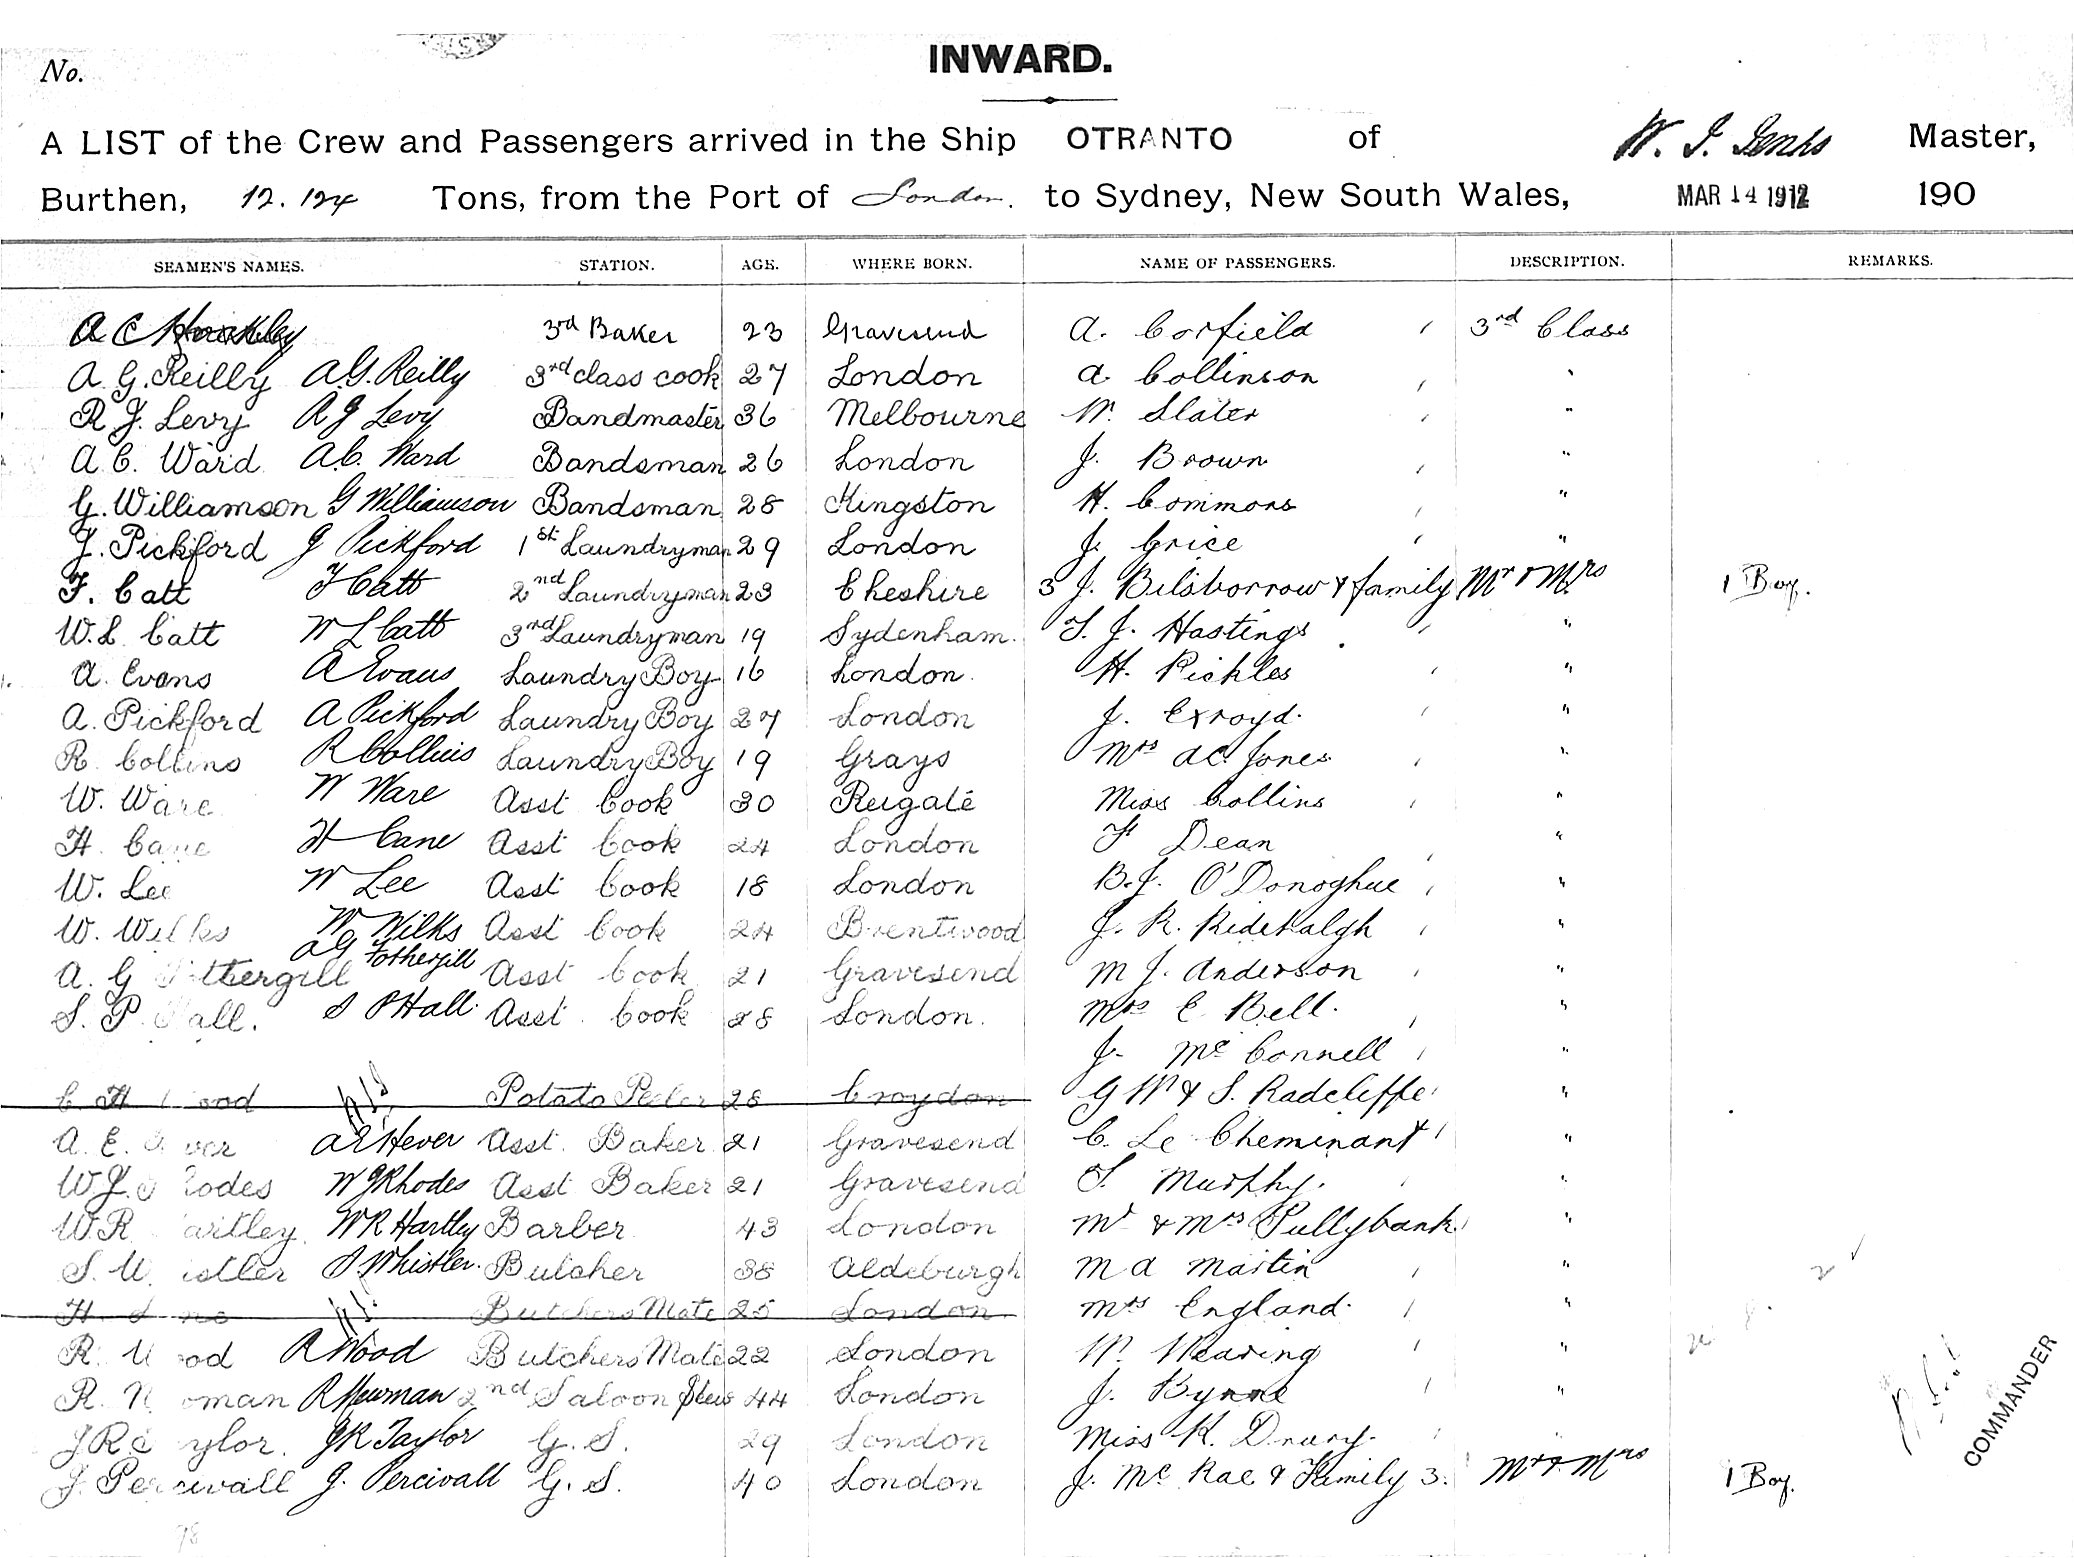 INWARD.
No.
A LIST of the Crew and Passengers arrived in the Ship OTRANTO of W. J. Jenks Master,
Burthen, 12.124 Tons, from the Port of London. to Sydney, New South Wales, MAR 14 1912 190
SEAMEN'S NAMES. STATION. AGE. WHERE BORN. NAME OF PASSENGERS. DESCRIPTION. REMARKS.
A C 3rd Baker 23 Gravesend A. Corfield 3rd Class
A. G. Reilly A.G. Reilly 3rd class cook 27 London A Collinson "
R J. Levy R J Levy Bandmaster 36 Melbourne W. Slater "
A C. Ward A.C. Ward Bandsman 26 London J. Brown "
G. Williamson G Williamson Bandsman 28 Kingston H. Commons "
J. Pickford J Pickford 1st Laundryman 29 London J. Grice "
F. Catt F Catt 2nd Laundryman 23 Cheshire 3 J. Bilsborrow & family Mr & Mrs 1 Boy.
W.L. Catt W L Catt 3rd Laundryman 19 Sydenham. T. J. Hastings "
A. Evans A Evans Laundry Boy 16 London. H. Pickles "
A. Pickford A Pickford Laundry Boy 27 London J. Exroyd. "
R. Collins R Collins Laundry Boy 19 Grays Mrs A C. Jones "
W. Ware W Ware Asst Cook 30 Reigate Miss Collins "
H. Cane H Cane Asst Cook 24 London F Dean "
W. Lee W Lee Asst Cook 18 London B.J. O'Donoghue "
W. Wilks W Wilks Asst Cook 24 Brentwood J. R. Ridehalgh "
A. G. Fothergill A G Fothergill Asst Cook 21 Gravesend M J. Anderson "
S. P. Hall. S P Hall. Asst. Cook 28 London. Mrs E Bell. "
J. McConnell "
C H wood Potato Peeler 28 Croydon G W & S. Radcliffe "
A. E. Hever A E Hever Asst. Baker 21 Gravesend C. Le Cheminant "
W J. Rhodes W J Rhodes Asst Baker 21 Gravesend T. Murphy. "
W R Hartley. W R Hartley Barber 43 London Mr & Mrs Pullybank. "
S. Whistler S Whistler. Butcher 38 Aldeburgh M A Martin "
H. Butchers Mate 25 London Mrs England. "
R. Wood R Wood Butchers Mate 22 London W. Wearing "
R. Newman R Newman 2nd Saloon Stew 44 London J. Byrne "
J R Taylor. J R Taylor G. S. 29 London Miss K. Drury. "
J. Percivall J. Percivall G. S. 40 London J. McRae & Family 3. Mr & Mrs 1 Boy.
COMMANDER